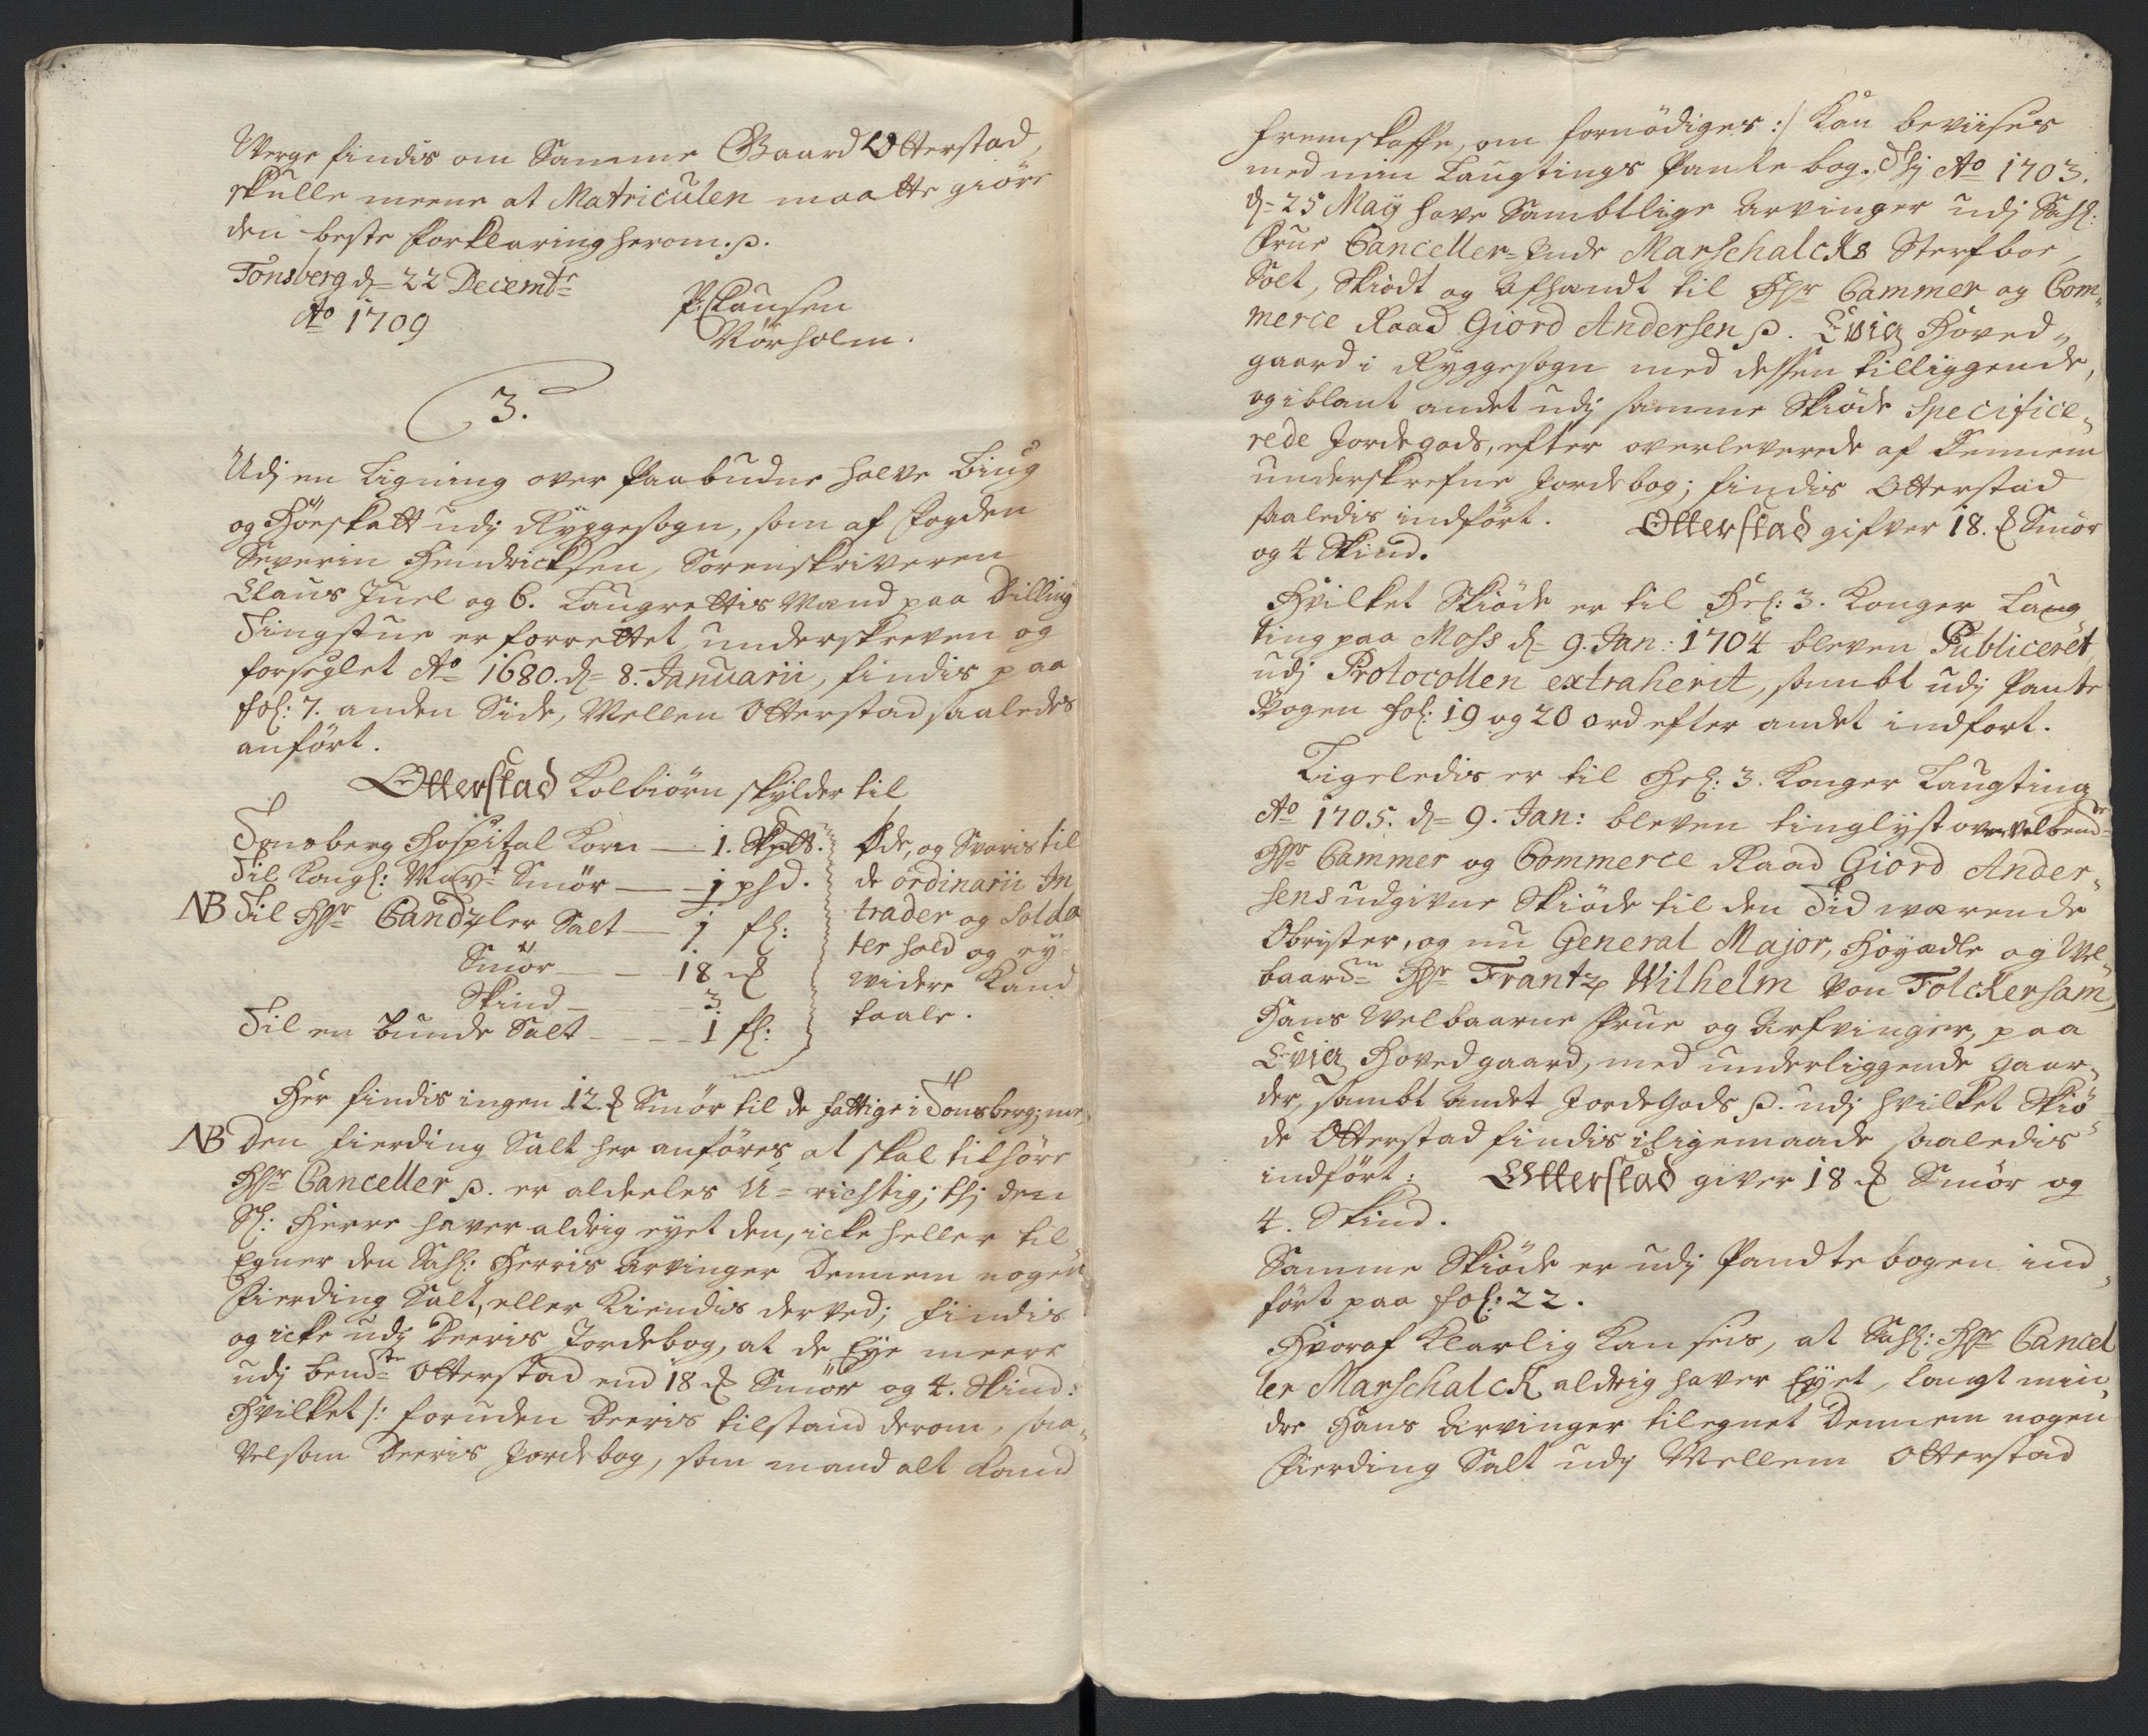 Werge findis om Samme Gaard Otterstad,
skulle meene at Matriculen maatte giöre
den beste forklaring herom. p.
Tönsberg d= 22 Decembr
Ao 1709
P: Clausen
Nörholm.
3.
Udj en Ligning over Paabudne halve Biug
og Höeskatt udj Ryggesogn, som af Fogden
Severin Hendricksen, Sorenskriveren
Claus Juel og 6. Laugrettis Mænd paa Dilling
Tingstue er forrettet, underskreven og
forseglet Ao 1680. d= 8. Januarii, findis paa
fol: 7. anden Side, Mellen Otterstad saaledes
anfört.
Otterstad Kolbiörn skylder til
Tonsberg Hospital Korn — 1. Skplt.
Til Kongl: Mayt Smör — 1 phd.
NB Til Hr Candzler Salt — 1 fl:
Smör — 18 ℔
Skind — 3.
Til en bunde Salt — 1 fl:
Öde, og Svaris til
de ordinarii In
trader og Solda
ter hold og ey
widere Kand
taale.
Her findis ingen 12. ℔ Smör til de fattige i Tonsberg; me„
NB Den fierding Salt her anföres, at skal tilhöre
Hr Canceller p. er aldeeles U= richtig; thj den
Sl: Herre haver aldrig eyet den, icke heller til
Egner den Sahl: Herris Arvinger Dennem nogen
fierding Salt, eller Kiendis derved; findis
og icke udj Deeris Jordebog, at de Eye meere
udj bemte Otterstad end 18 ℔ Smör og 4. Skind:
Hvilket /: foruden Deeris tilstand derom, saa„
velsom Deeris Jordebog, som mand alt Kand
fremskaffe, om fornödiges :/ Kan beviises
med min Laugtings Pante bog. Thj Ao 1703.
d= 25 Maij have Samtlige Arvinger udj Sahl:
Frue Canceller= Inde Marschalcks Sterfboe,
Solt, Skiödt og Afhændt til Hr Cammer og Com„
merce Raad Giord Andersen p. Evig Hoved„
gaard i Ryggesogn med dessen tilliggende,
og iblant andet udj samme Skiöde Specifice„
rede Jordegods, efter overleverede af Dennem
underskrefne Jordebog; findis Otterstad
saaledis indfört. Otterstad gifver 18. ℔ Smör
og 4 Skind.
Hvilket Skiöde er til Hel: 3. Konger Laug
ting paa Moss d= 9. Jan: 1704 bleven Publiceret,
udj Protocollen extraherit, sambt udj Pante
Bogen fol: 19 og 20 ord efter andet indfört.
Ligeledis er til Hel: 3. Konger Laugting
Ao 1705. d= 9. Jan: bleven tinglyst ovenvelbemte
Hr Cammer og Commerce Raad Giord Ander„
sens udgivne Skiöde til den Tid wærende
Obrister, og nu General Major, Höyædle og Wel„
baarne Hr Frantz Wilhelm von Folckersam,
Hans Velbaarne Frue og Arfvinger, paa
Evig Hovedgaard, med underliggende gaar„
der, sambt andet Jordegods p. udj hvilket Skiö
de Otterstad findis i ligemaade saaledis
indfört: Otterstad giver 18 ℔ Smör og
4. Skind.
Samme Skiöde er udj Pandtebogen ind„
fört paa fol: 22.
Hvoraf Klarlig Kan seis, at Sahl: Hr Cancel
ler Marschalck aldrig haver Eyet, langt min„
dre Hans Arvinger tilegnet Dennem nogen
fierding Salt udj Mellem Otterstad